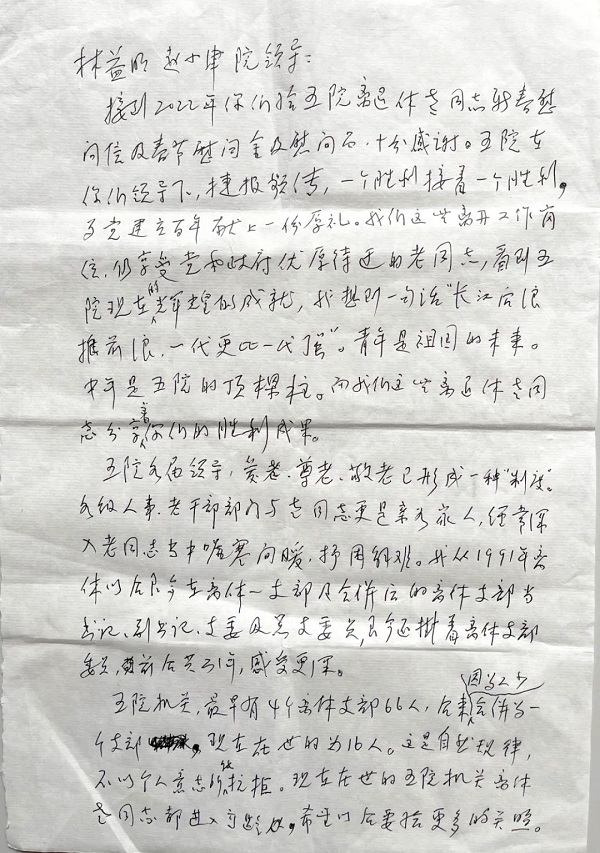 林益明 赵小津 院领导:
接到2022年你们给五院离退休老同志新春慰
问信及春节慰问金及慰问品,十分感谢。五院在
你们领导下,捷报频传,一个胜利接着一个胜利,
为党建立百年献上一份厚礼。我们这些离开工作岗
位,仍享受党和政府优厚待遇的老同志,看到五
院现在的光辉的成就,我想到一句话“长江后浪
推前浪,一代更比一代强”。青年是祖国的未来。
中年是五院的顶梁柱。而我们这些离退休老同
志分享着你们的胜利成果。
五院各届领导,爱老、尊老、敬老已形成一种“制度”。
各级人事、老干部部门与老同志更是亲如家人,经常深
入老同志当中嘘寒问暖,抒困解难。我从1991年离
休以后只今在离休一支部及合併后的离休支部当
书记、副书记、支委及无支委员,只今还挂着离休支部
委员,前后共31年,感受更深。
五院机关,最早有4个离休支部66人,后来因为人少合併为一
个支部,现在在世的为16人。这是自然规律,
不以个人意志所能抗拒。现在在世的五院机关离休
老同志都进入高龄,希望以后要给更多的关照。